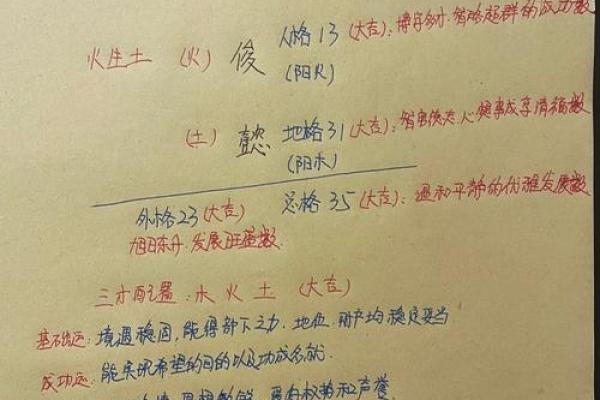 火生土 (火) 俊 人格13 (大吉): 博学多才.智略超群的成功数
(阳火)
(土) 懿 地格31 (大吉): 智勇 心想事成享清福数
(阳木)
外格23 (大吉) 总格35 (大吉): 温和平静的优雅发展数
旭日东升.发展旺盛数.
三才配置: 木 火 土 (大吉)
基础运: 境遇稳固,能得部下之力.地位.财产均稳定妥当
成功运: 能实现希望的目的以及功成名就.
思想敏锐. 权势和声誉.